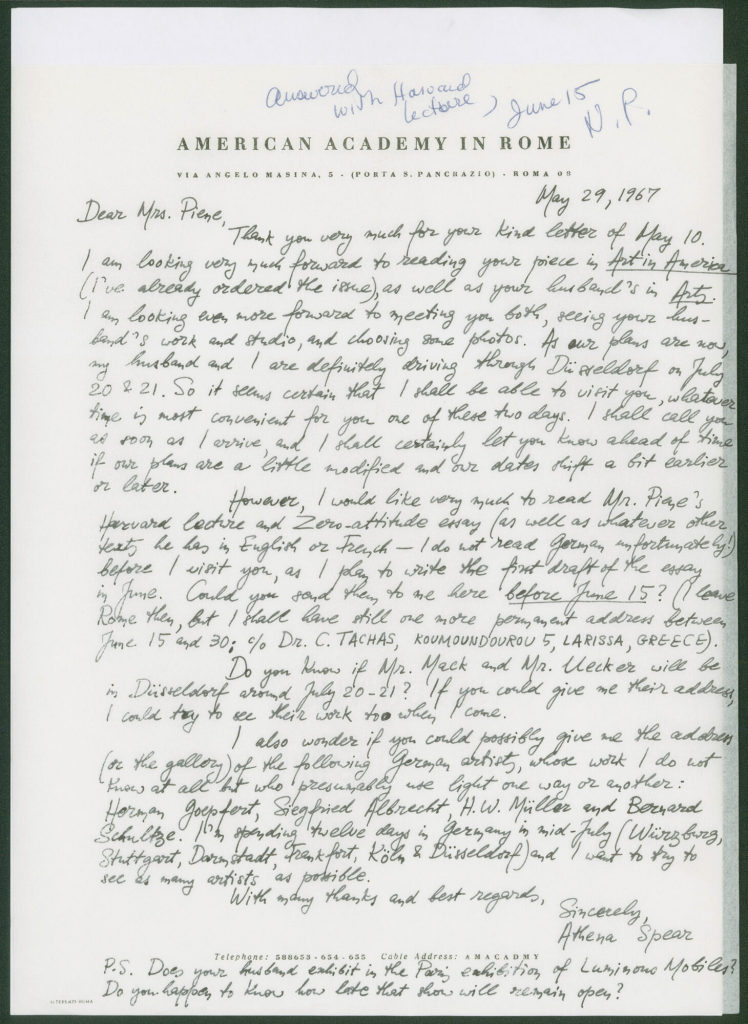 answered
with Harvard
lecture, June 15
N.P.
AMERICAN ACADEMY IN ROME
VIA ANGELO MASINA, 5 - (PORTA S. PANCRAZIO) - ROMA 08
May 29, 1967
Dear Mrs. Piene,
Thank you very much for your kind letter of May 10.
I am looking very much forward to reading your piece in Art in America
(I've already ordered the issue), as well as your husband's in Arts.
I am looking even more forward to meeting you both, seeing your hus-
band's work and studio, and choosing some photos. As our plans are now,
my husband and I are definitely driving through Düsseldorf on July
20 & 21. So it seems certain that I shall be able to visit you, whatever
time is most convenient for you one of these two days. I shall call you
as soon as I arrive, and I shall certainly let you know ahead of time
if our plans are a little modified and our dates shift a bit earlier
or later.
However, I would like very much to read Mr. Piene's
Harvard lecture and Zero-attitude essay (as well as whatever other
texts he has in English or French — I do not read German unfortunately!)
before I visit you, as I plan to write the first draft of the essay
in June. Could you send them to me here before June 15? (I leave
Rome then, but I shall have still one more permanent address between
June 15 and 30: c/o Dr. C. TACHAS, KOUMOUNDOUROU 5, LARISSA, GREECE).
Do you know if Mr. Mack and Mr. Uecker will be
in Düsseldorf around July 20-21? If you could give me their address,
I could try to see their work too when I come.
I also wonder if you could possibly give me the address
(or the gallery) of the following German artists, whose work I do not
know at all but who presumably use light one way or another:
Herman Goepfert, Siegfried Albrecht, H.W. Müller and Bernard
Schultze. I'm spending twelve days in Germany in mid-July (Würzburg,
Stuttgart, Darmstadt, Frankfort, Köln & Düsseldorf) and I want to try to
see as many artists as possible.
With many thanks and best regards,
Sincerely,
Athena Spear
Telephone: 588653 - 654 - 655 Cable Address: AMACADMY
P.S. Does your husband exhibit in the Paris exhibition of Luminous Mobiles?
Do you happen to know how late that show will remain open?